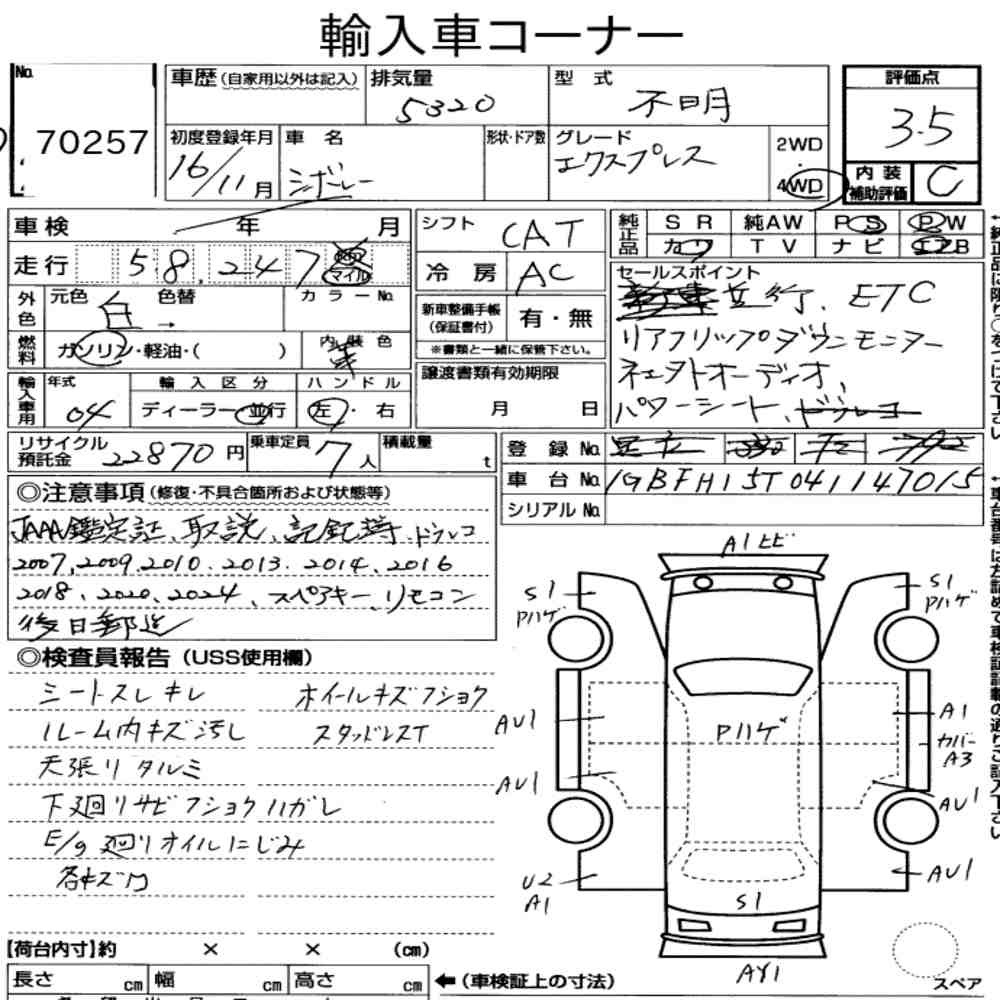 輸入車コーナー
No.
70257
車歴 (自家用以外は記入)
排気量
5320
型式
不明
評価点
3.5
初度登録年月
16/11月
車名
シボレー
形状・ドア数
グレード
エクスプレス
2WD
・
4WD
内装補助評価
C
車検 年 月
走行 58,247 マイル
シフト CAT
冷房 AC
純正品
SR 純AW PS PW
カワ TV ナビ エアB
セールスポイント
並行、ETC
リアフリップダウンモニター
ネェクトオーディオ、
パワーシート、
外色
元色 白 色替 → カラーNo.
燃料
ガソリン・軽油・( )
内装色
新車整備手帳(保証書付)
有・無
※書類と一緒に保管下さい。
輸入車用
年式
04
輸入区分
ディーラー・並行
ハンドル
左・右
譲渡書類有効期限
月 日
リサイクル預託金 22870円
乗車定員 7人
積載量 t
登録No.
車台No. 1GBFH15T041147015
シリアルNo.
◎注意事項 (修復・不具合箇所および状態等)
JAAA鑑定証、取説、記録簿、ドラレコ
2007,2009,2010、2013、2014、2016
2018、2020、2024、スペアキー、リモコン
後日郵送
◎検査員報告 (USS使用欄)
シートスレキレ ホイールキズフショク
ルーム内キズ汚し スタッドレスT
天張リタルミ
下廻リサビフショクハガレ
E/g廻リオイルにじみ
各キズ凹
A1ヒビ
S1
Pハゲ
S1
Pハゲ
AU1
Pハゲ
A1
カバー
A3
AU1
AU1
U2
A1
AU1
S1
AY1
スペア
【荷台内寸】約 × × (cm)
長さ cm 幅 cm 高さ cm
← (車検証上の寸法)